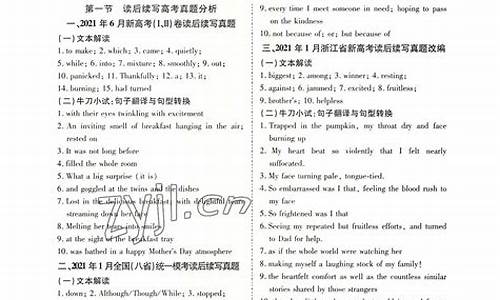 第一节 读后续写高考真题分析
一、2021年6月新高考(I,II)卷读后续写真题
(一)文本解读
1. to make; 2. which; 3. came; 4. quietly;
5. while; 6. into; 7. mixture; 8. smoothly; 9. out;
10. panicked; 11. Thankfully; 12. a; 13. it;
14. burning; 15. had turned
(二)牛刀小试:句子翻译与句型转换
1. with their eyes twinkling with excitement
2. An inviting smell of breakfast hanging in the air;
rested on
3. It was not long before
4. filled the whole room
5. What a big surprise (it is)
6. and goggled at the twins and the dishes
7. Lost in the delicious breakfast, with delightful tears
streaming down her face
8. Melting her tears into smiles
9. at the sight of the breakfast tray
10. was bathed in a happy Mother's Day atmosphere
二、2021年1月全国(八省)统一模考读后续写真题
(一)文本解读
1. down; 2. Although/Though/While; 3. stopped;
9. every time I meet someone in need; hoping to pass
on the kindness
10. not because of; or; but because of
三、2021年1月浙江省新高考读后续写真题改编
(一)文本解读
1. biggest; 2. among; 3. winner; 4. resting;
5. against; 6. jammed; 7. excited; 8. fruitless;
9. brother's; 10. helpless
(二)牛刀小试:句子翻译与句型转换
1. Trapped in the pumpkin, my throat dry and face
burning up
2. My heart beat so violently that I felt nearly
suffocated.
3. My face turning pale, tongue-tied.
4. So embarrassed was I that, feeling the blood rush to
my face
5. So frightened was I that
6. Seeing my repeated but fruitless efforts, and turned
to Dad for help.
7. as if the whole world were watching her
8. making myself a laughing stock of my family!
9. the heartfelt comfort as well as the countless similar
stories shared by those strangers